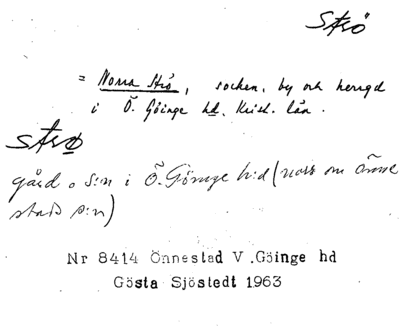 Strö
= Norra Strö, socken, by och herrgd
i Ö. Göinge hd, Krist. län.
Strö
gård o s:n i Ö. Göinge h:d (norr om Önne
stads s:n)
Nr 8414 Önnestad V .Göinge hd
Gösta Sjöstedt 1963